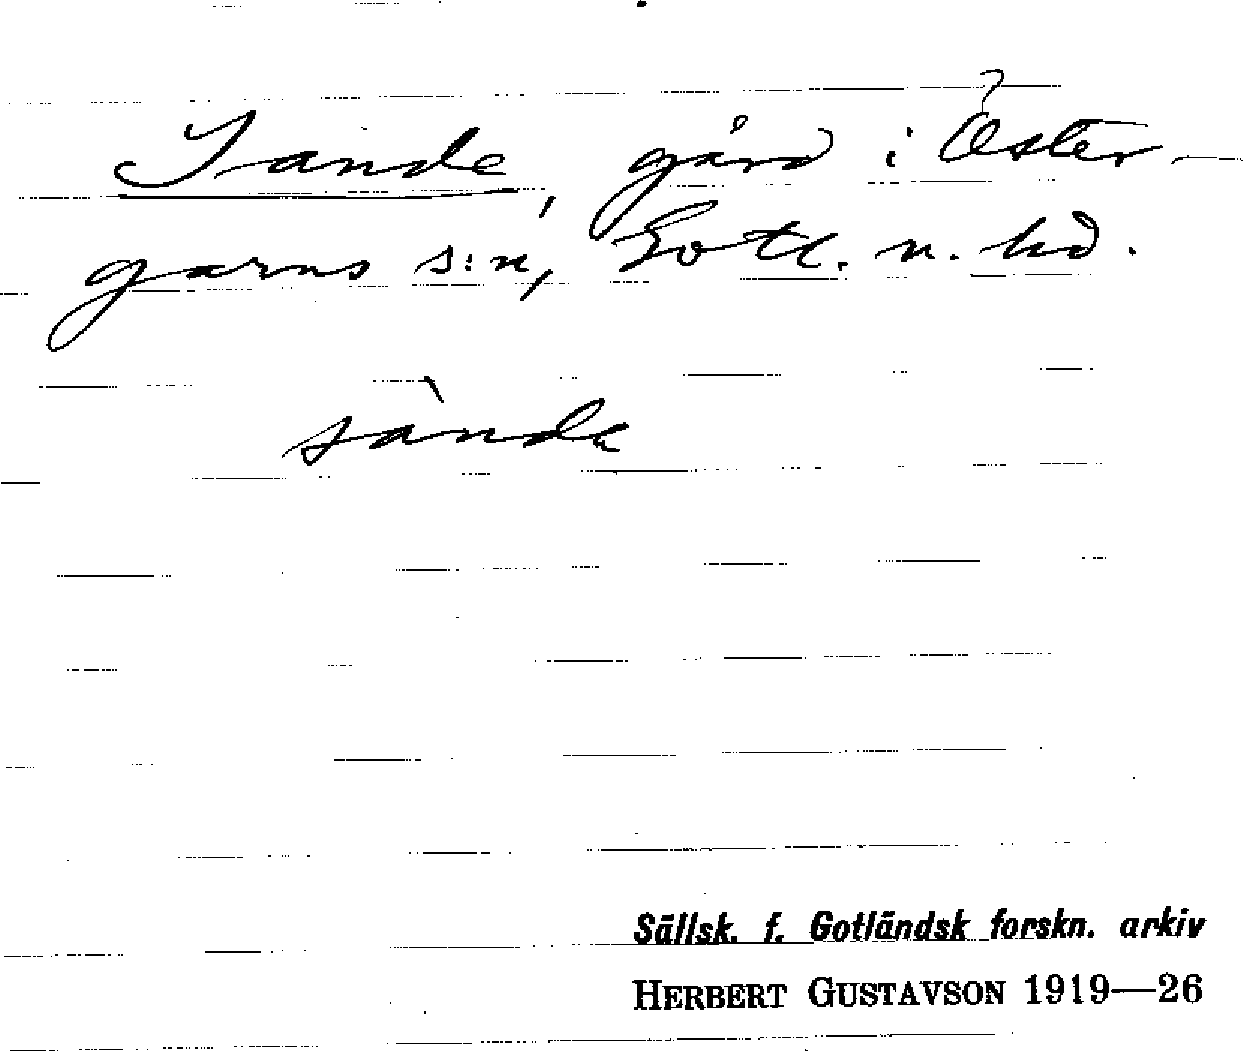 Sande, gård i Öster-
garns s:n, Gotl. n. hd.
sànde
Sällsk. f. Gotländsk forskn. arkiv
HERBERT GUSTAVSON 1919—26